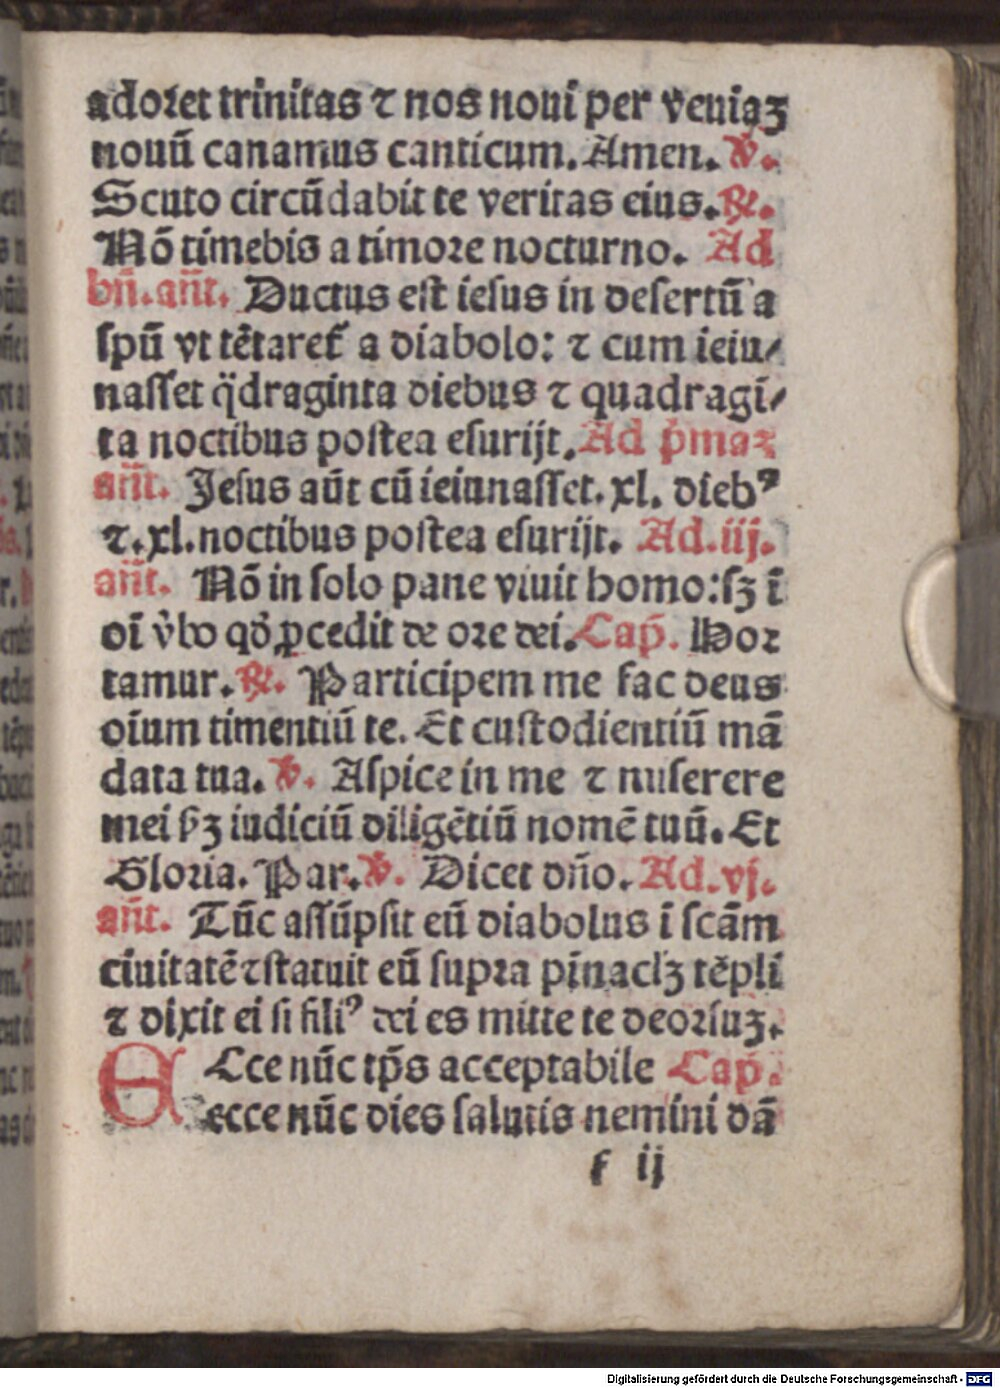 adoret trinitas ⁊ nos noui per veniaꝫ
nouū canamus canticum. Amen. ℣.
Scuto circūdabit te veritas eius. ℟.
Nō timebis a timore nocturno. Ad
bn̄. an̄t. Ductus est iesus in desertū a
spū vt tētaret᷑ a diabolo: ⁊ cum ieiu⸗
nasset q̈draginta diebus ⁊ quadragī⸗
ta noctibus postea esurijt. Ad p̄maꝫ
an̄t. Jesus aūt cū ieiunasset. xl. dieb⁹
⁊. xl. noctibus postea esurijt. Ad. iij.
an̄t. Nō in solo pane viuit homo: sꝫ ī
oī v̄bo qd̄ ꝓcedit de ore dei. Cap̄. Hor
tamur. ℟. Participem me fac deus
oīum timentiū te. Et custodientiū mā
data tua. ℣. Aspice in me ⁊ miserere
mei ẜꝫ iudiciū diligētiū nomē tuū. Et
Gloria. Par. ℣. Dicet dn̄o. Ad. vj.
an̄t. Tūc assūpsit eū diabolus ī scām
ciuitatē ⁊ statuit eū supra pīnaclꝫ tēpli
⁊ dixit ei si fili⁹ dei es mitte te deorsuꝫ.
ECce nūc tp̄s acceptabile Cap̄.
ecce nūc dies salutis nemini dā
f ij
Digitalisierung gefördert durch die Deutsche Forschungsgemeinschaft - DFG